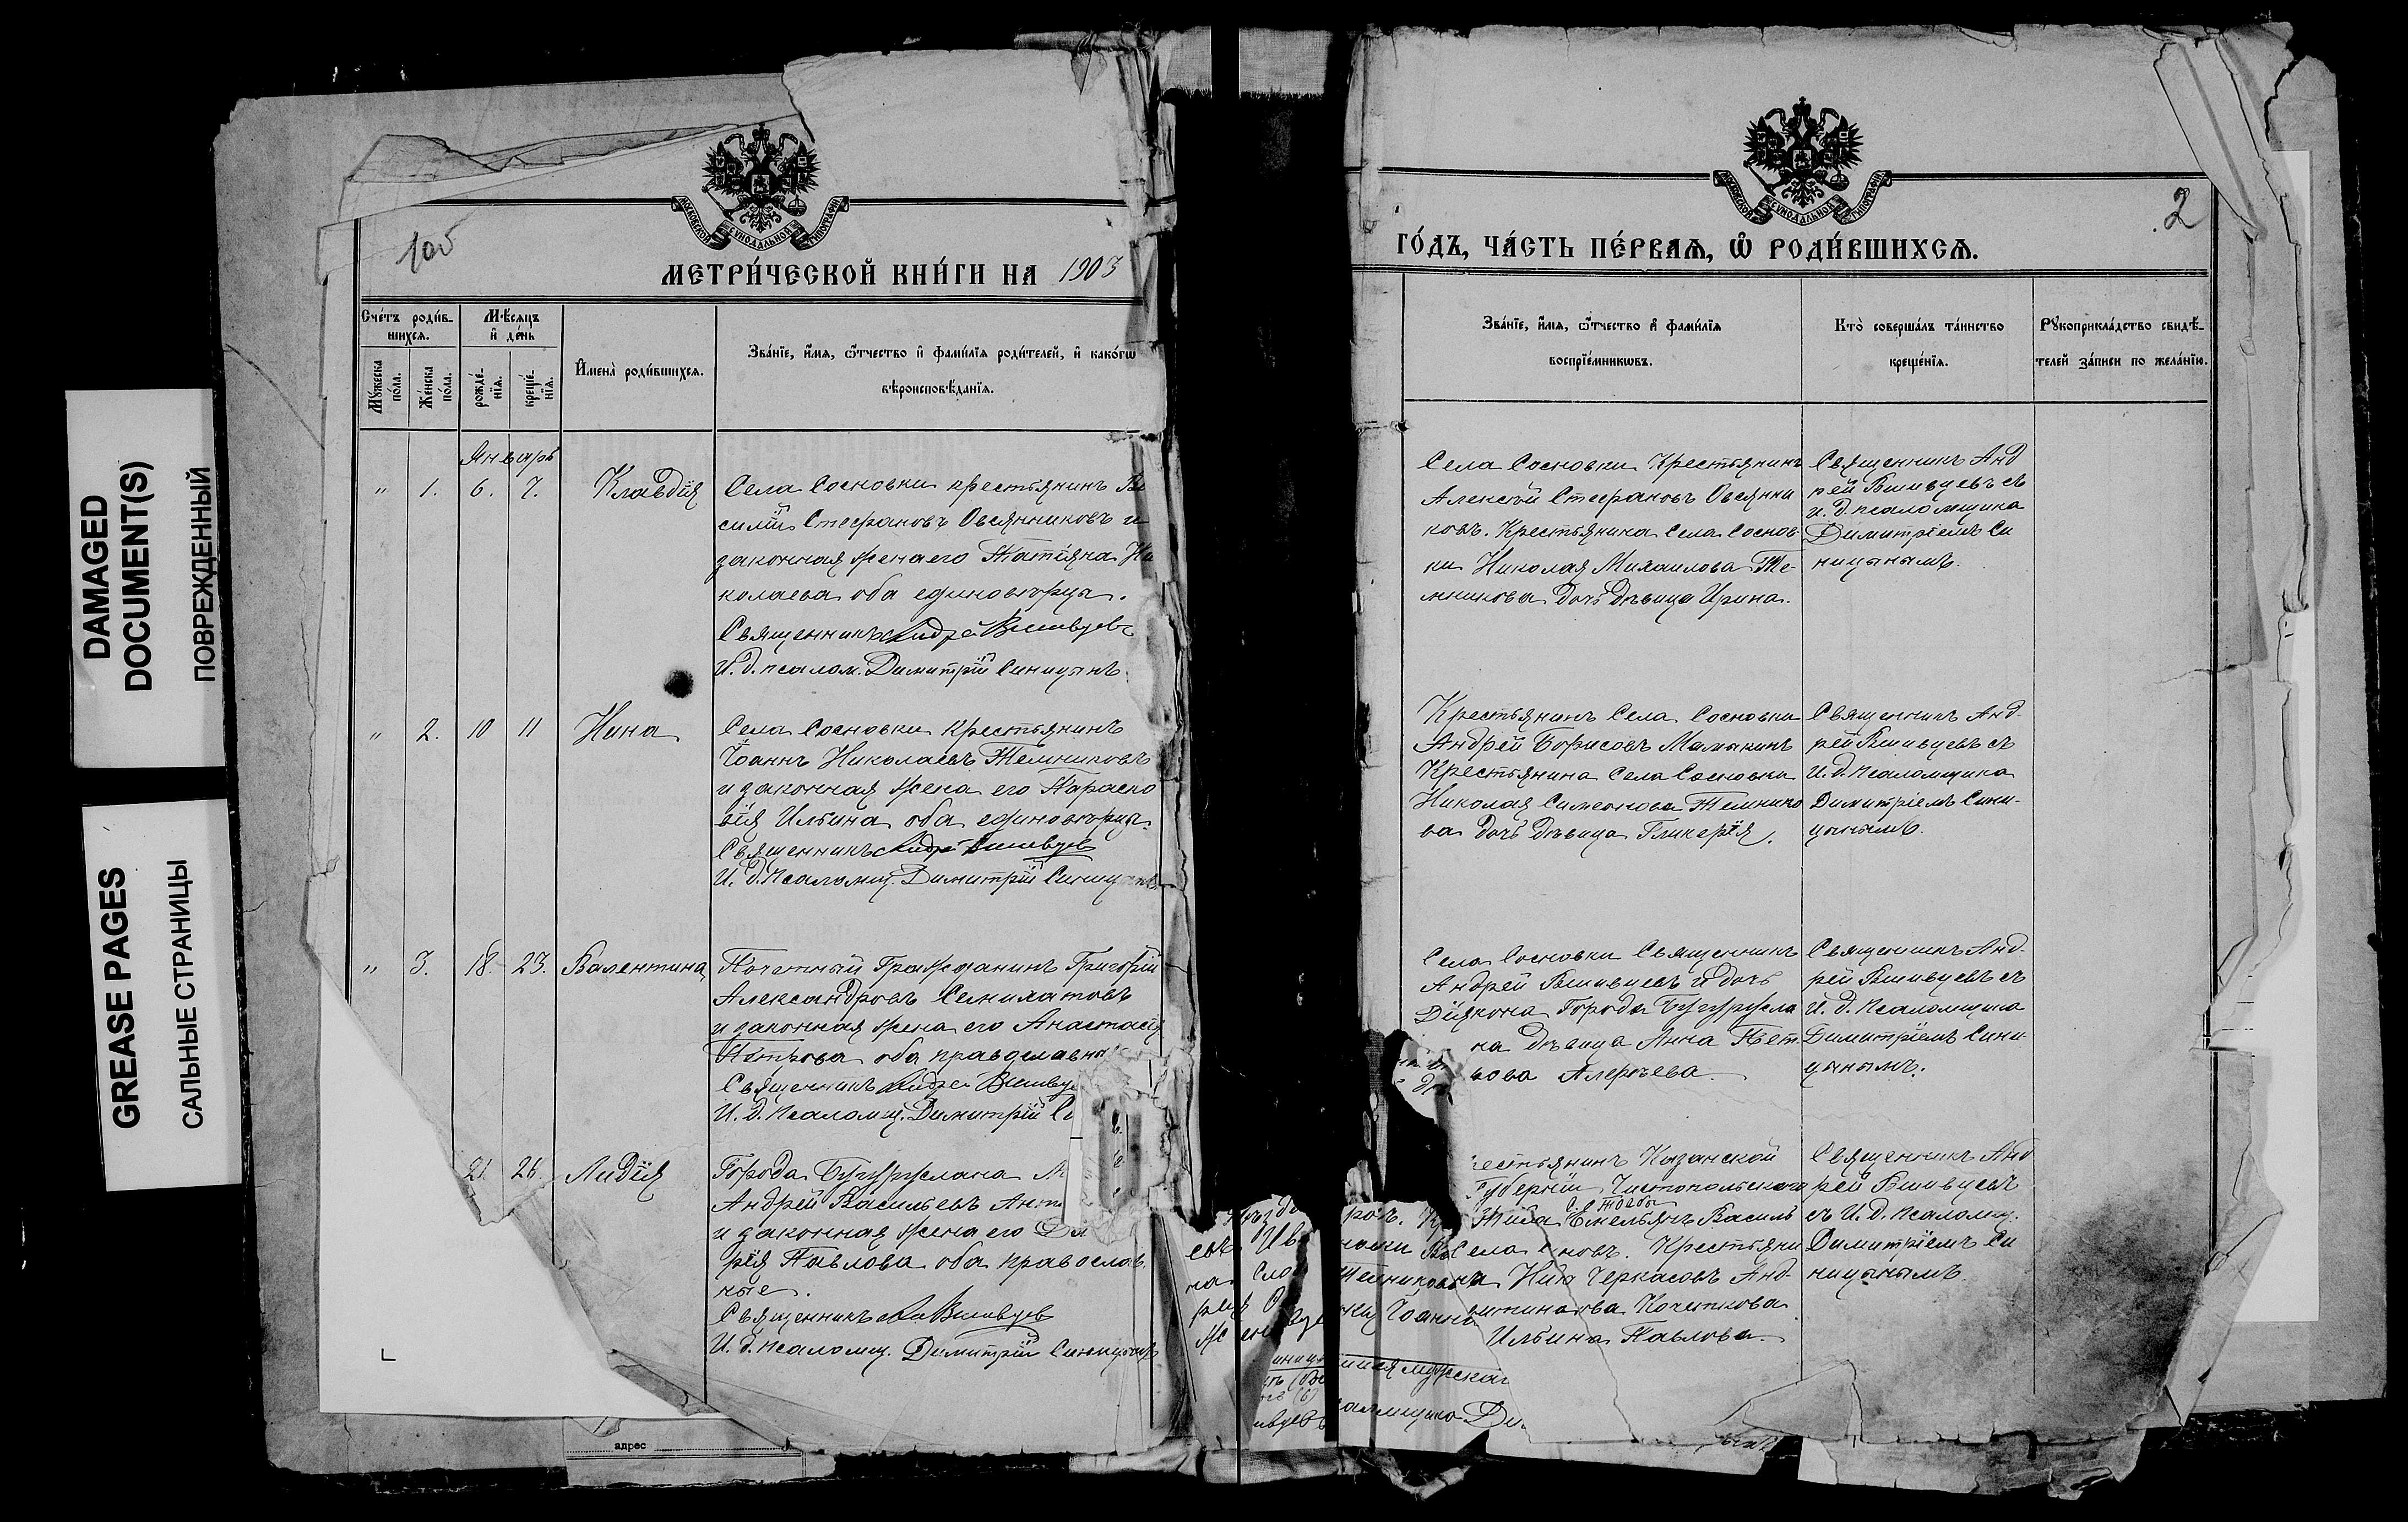 DAMAGED
DOCUMENT(S)
ПОВРЕЖДЕННЫЙ
GREASE PAGES
САЛЬНЫЕ СТРАНИЦЫ
МОСКОВСКОЙ СѴНОДАЛЬНОЙ ТИПОГРАФІИ
МЕТРИ́ЧЕСКОЙ КНИ́ГИ НА 1903
Сче́тъ роди́в-
шихсѧ.
Мꙋ́жеска
по́ла.
Же́нска
по́ла.
Мѣ́сѧцъ
и҆ де́нь
рожде́-
нїѧ.
креще́-
нїѧ.
И҆мена̀ роди́вшихсѧ.
Зва́нїе, и҆́мѧ, ѻ҆́тчество и҆ фами́лїѧ роди́телей, и҆ како́гѡ
вѣроисповѣ́данїѧ.
Январь
" 1. 6. 7. Клавдія
Села Сосновки крестьянинъ Ва
силій Стефановъ Овсянниковъ и
законная жена его Татіяна Ни
колаева оба единовѣрцы.
Священникъ Андрей Вшивцев
И. д. псалом. Димитрій Синицынъ.
" 2. 10 11 Нина
Села Сосновки крестьянинъ
Іоаннъ Николаевъ Темниковъ
и законная жена его Параско
вія Ильина оба единовѣрцы.
Священникъ Андрей Вшивцев
И. д. псаломщ. Димитрій Синицынъ.
" 3. 18. 23. Валентина
Почетный Гражданинъ Григорій
Александровъ Селихатовъ
и законная жена его Анастасія
Петрова оба православны
Священникъ Андрей Вшивц
И. д. Псаломщ. Димитрій Си
21. 26. Лидія
Города Бугуруслана М
Андрей Васильевъ Ант
и законная жена его Да
рія Павлова оба православ
ные.
Священникъ Ан Вшивцев
И. д. псаломщ. Димитрій Синицынъ
адрес
МОСКОВСКОЙ СѴНОДАЛЬНОЙ ТИПОГРАФІИ
2
ГО́ДЪ, ЧА́СТЬ ПЕ́РВАѦ, Ѽ РОДИ́ВШИХСѦ.
Зва́нїе, и҆́мѧ, ѻ҆́тчество и҆ фами́лїѧ
воспрїе́мникѡвъ.
Кто̀ соверша́лъ та́инство
креще́нїѧ.
Рꙋкоприкла́дство свидѣ́-
телей за́писи по жела́нїю.
Села Сосновки Крестьянинъ
Алексѣй Стефановъ Овсянни
ковъ. Крестьянина села Соснов-
ки Николая Михаилова Те-
мникова дочь дѣвица Ирина.
Священникъ Анд
рей Вшивцевъ съ
и. д. псаломщика
Димитріемъ Си
ницынымъ.
Крестьянинъ Села Сосновки
Андрей Борисовъ Мамыкинъ
Крестьянина Села Сосновки
Николая Симеонова Темнико
ва дочь дѣвица Гликерія.
Священникъ Анд-
рей Вшивцевъ съ
И. д. Псаломщика
Димитріемъ Сини-
цынымъ.
Села Сосновки Священникъ
Андрей Вшивцевъ и дочь
Діякона Города Бугурусла
на дѣвица Анна Пет-
рова Алероева.
Священникъ Анд-
рей Вшивцевъ съ
И. д. Псаломщика
Димитріемъ Сини-
цынымъ.
рестьянинъ Казанской
Губерніи, Чистопольскаго
Емельянъ Василь
Села новъ. Крестьяни
Черкасовъ Анд-
Кочеткова
Ильина Павлова.
Священникъ Анд
рей Вшивцевъ
съ И. д. псаломщ.
Димитріемъ Си
ницынымъ.